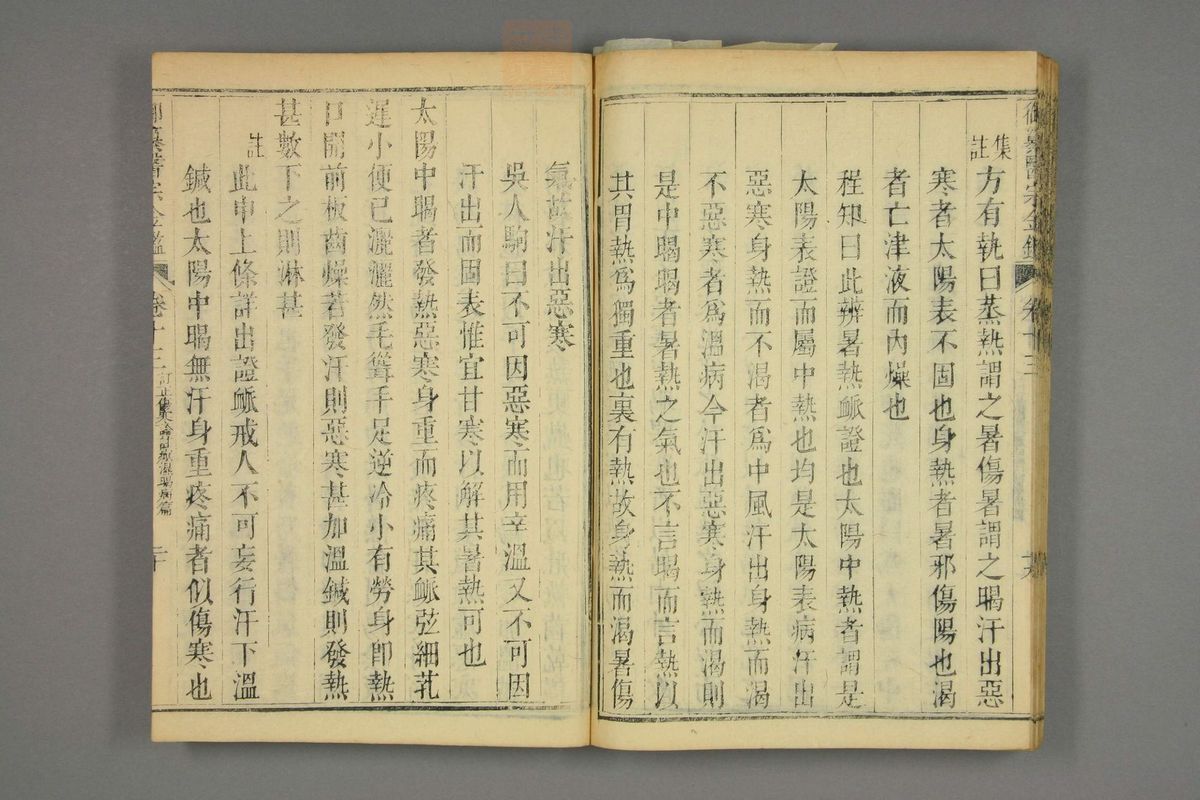 御纂醫宗金鑑 卷十三
集註
方有執曰蒸熱謂之暑傷暑謂之暍汗出惡
寒者太陽表不固也身熱者暑邪傷陽也渴
者亡津液而內燥也
程知曰此辨暑熱脈證也太陽中熱者謂是
太陽表證而屬中熱也均是太陽表病汗出
惡寒身熱而不渴者爲中風汗出身熱而渴
不惡寒者爲溫病今汗出惡寒身熱而渴則
是中暍暍者暑熱之氣也不言暍而言熱以
其胃熱爲獨重也裏有熱故身熱而渴暑傷
氣故汗出惡寒
吳人駒曰不可因惡寒而用辛溫又不可因
汗出而固表惟宜甘寒以解其暑熱可也
太陽中暍者發熱惡寒身重而疼痛其脈弦細芤
遲小便已灑灑然毛聳手足逆冷小有勞身卽熱
口開前板齒燥若發汗則惡寒甚加溫鍼則發熱
甚數下之則淋甚
註
此申上條詳出證脈戒人不可妄行汗下溫
鍼也太陽中暍無汗身重疼痛者似傷寒也
御纂醫宗金鑑 卷十三 訂正傷寒論 痙濕暍病篇 二十